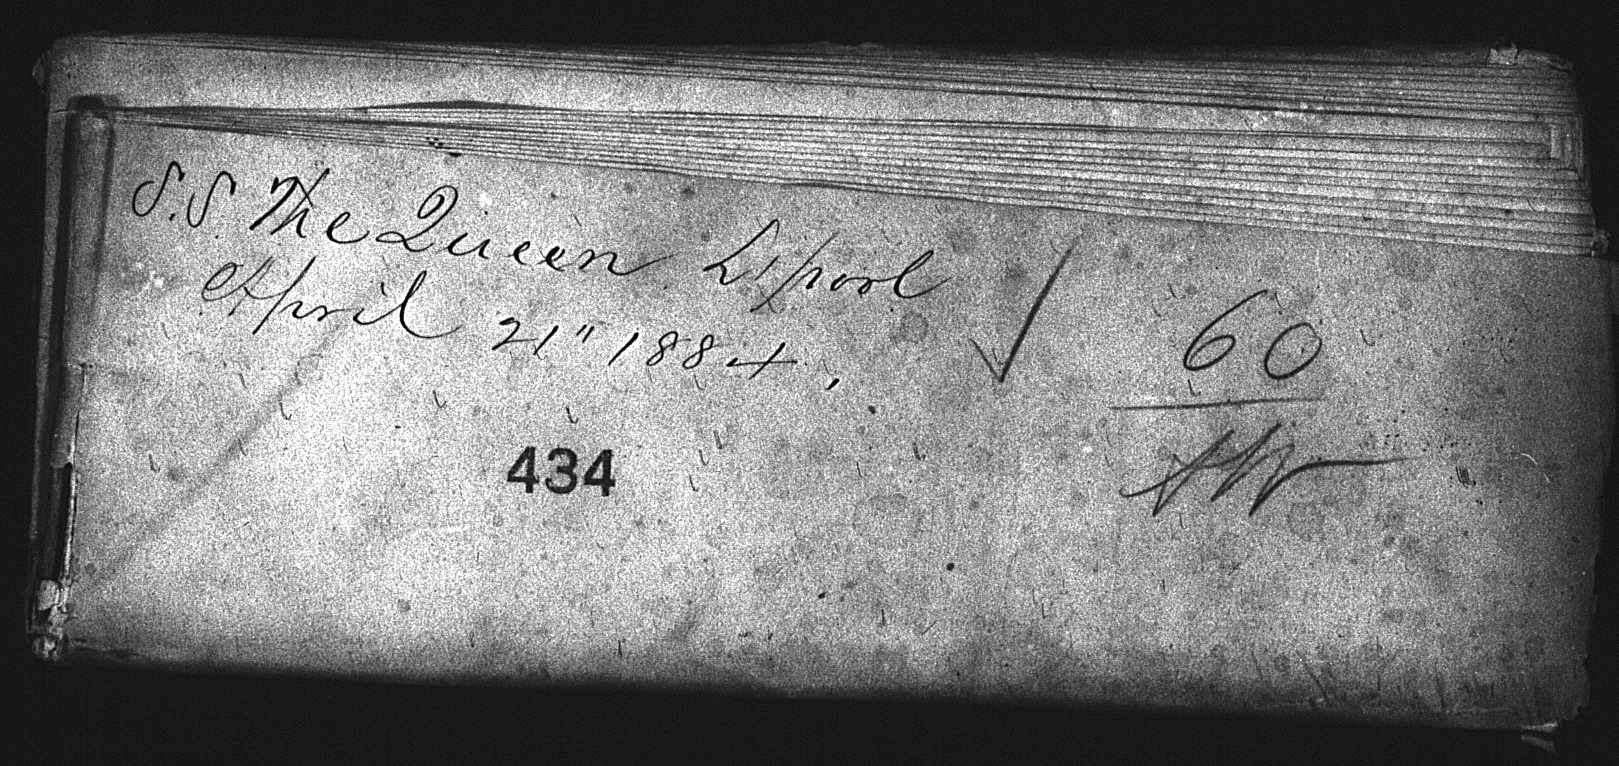 S.S. The Queen L'pool
April 21" 1884,
√
60
434